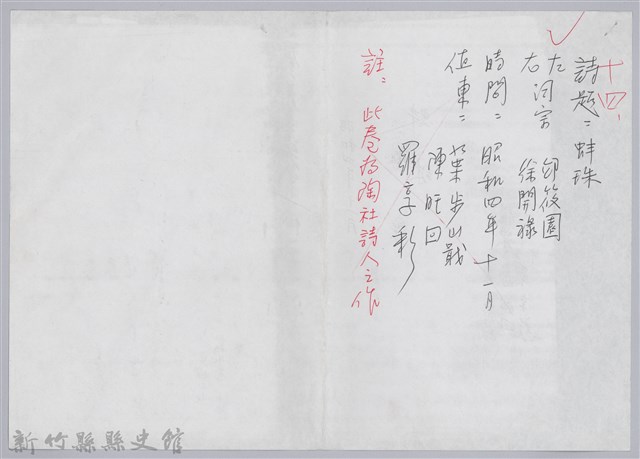 十四、
詩題：蚌珠
左詞宗 邱筱園
右 徐開祿
時間：昭和四年十一月
值東：葉步山 戢
陳旺回
羅享彩
註：此卷為陶社詩人之作
新竹縣縣史館